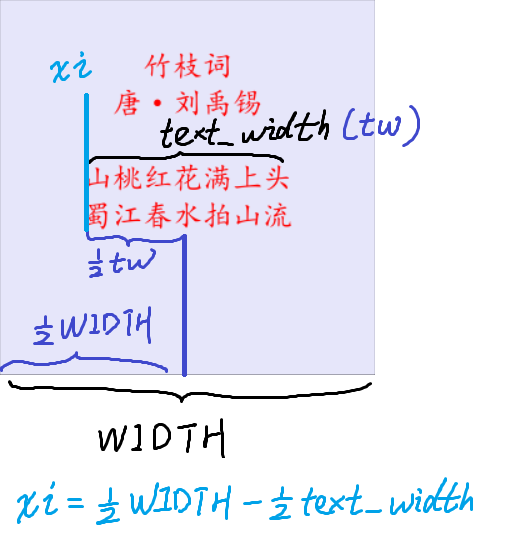 xi
竹枝词
唐·刘禹锡
text_width (tw)
山桃红花满上头
蜀江春水拍山流
½tw
½WIDTH
WIDTH
xi = ½WIDTH - ½text_width